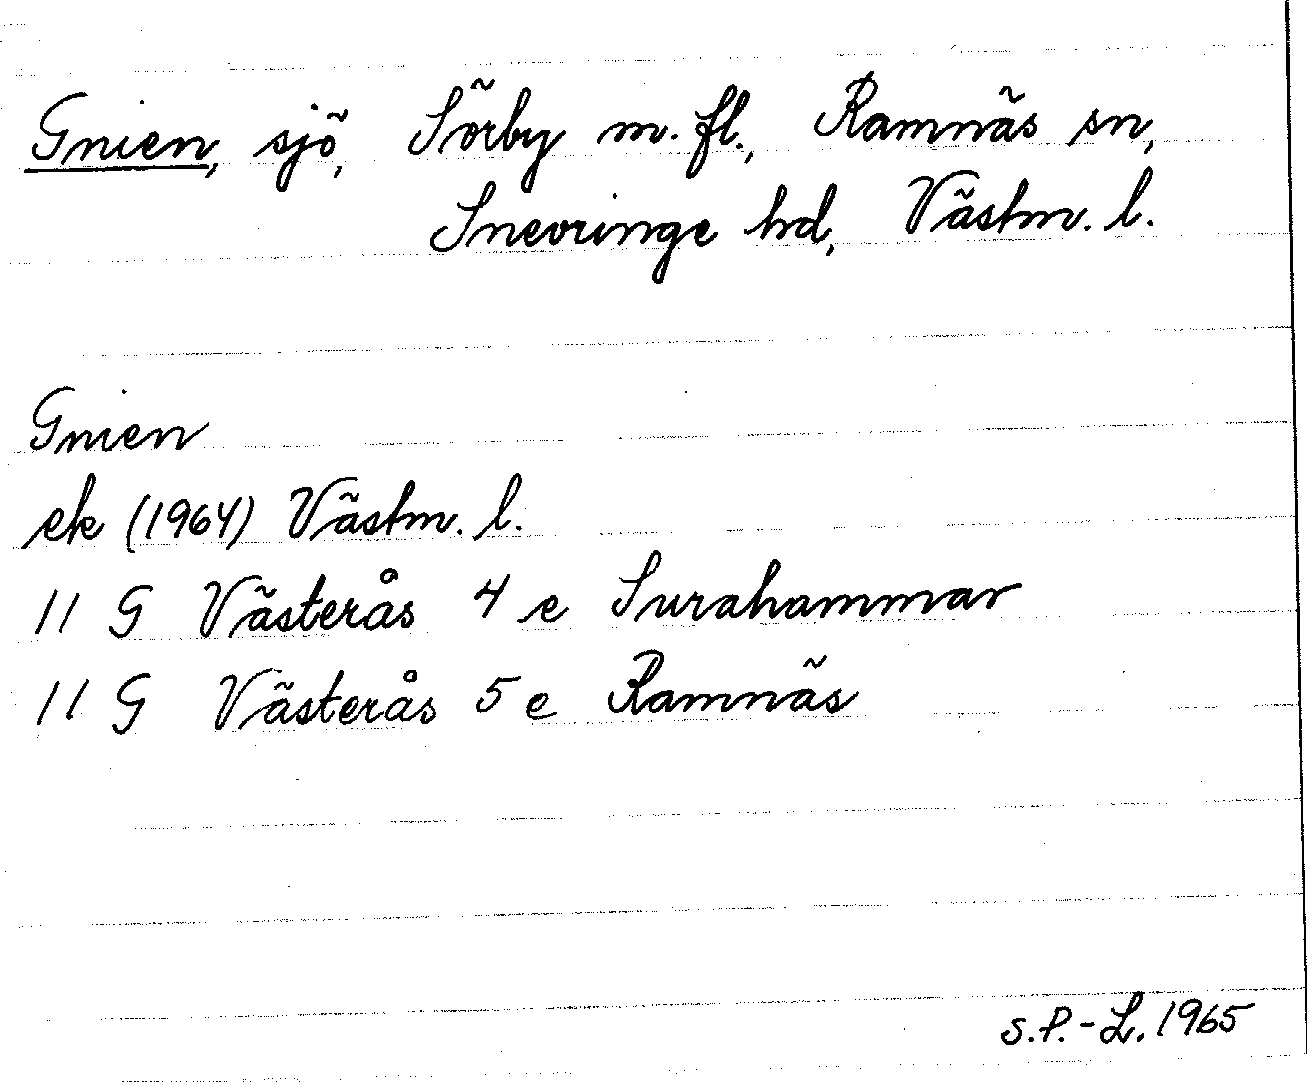 Gnien, sjö, Sörby m. fl., Ramnäs sn,
Snevringe hd, Västm. l.
Gnien
ek (1964) Västm. l.
11 G Västerås 4 e Surahammar
11 G Västerås 5 e Ramnäs
S.P.-L. 1965